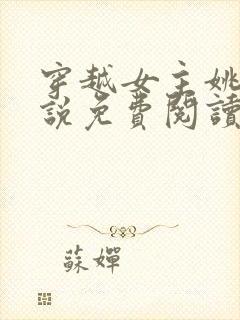 穿越女主姚
說免費閱讀
蘇嬋